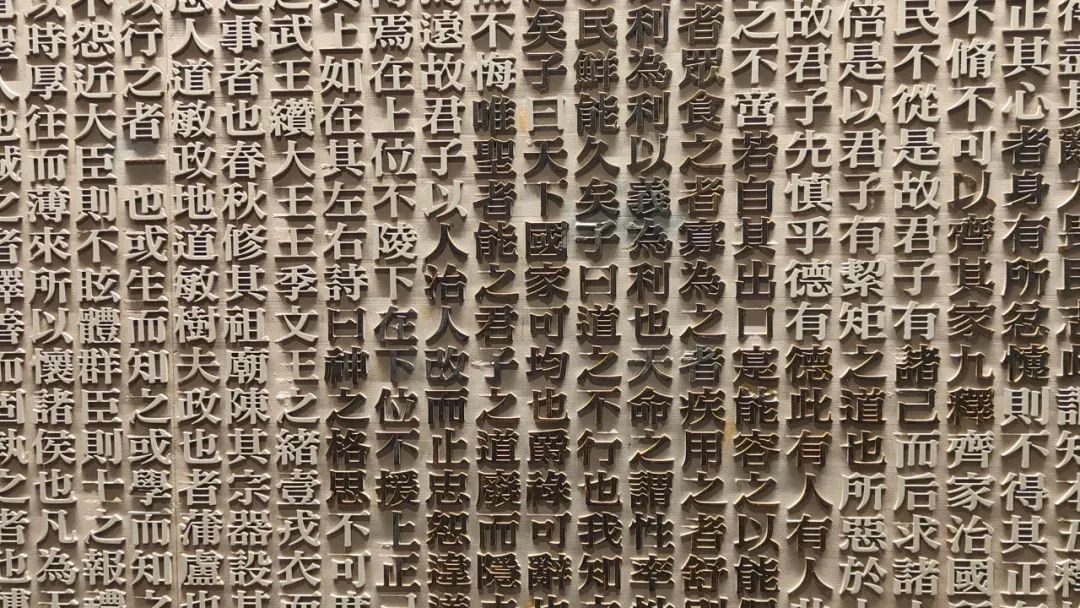 得盡其辭大畏民志此謂知本五釋
正其心者身有所忿懥則不得其正
不脩不可以齊其家九釋齊家治國
民不從是故君子有諸己而后求諸
倍是以君子有絜矩之道也所惡於
故君子先慎乎德有德此有人有人
之不啻若自其出口寔能容之以能
者眾食之者寡為之者疾用之者舒
利為利以義為利也天命之謂性率
民鮮能久矣子曰道之不行也我知
矣子曰天下國家可均也爵祿可辭
不悔唯聖者能之君子之道廢而隱
遠故君子以人治人改而止忠恕違
焉在上位不陵下在下位不援上正
上如在其左右詩曰神之格思不可
之武王纘大王王季文王之緒壹戎衣
之事者也春秋修其祖廟陳其宗器設其
人道敏政地道敏樹夫政也者蒲盧也
以行之者一也或生而知之或學而知之
怨近大臣則不眩體群臣則士之報禮
時厚往而薄來所以懷諸侯也凡為天
人也誠之者擇善而固執之者也